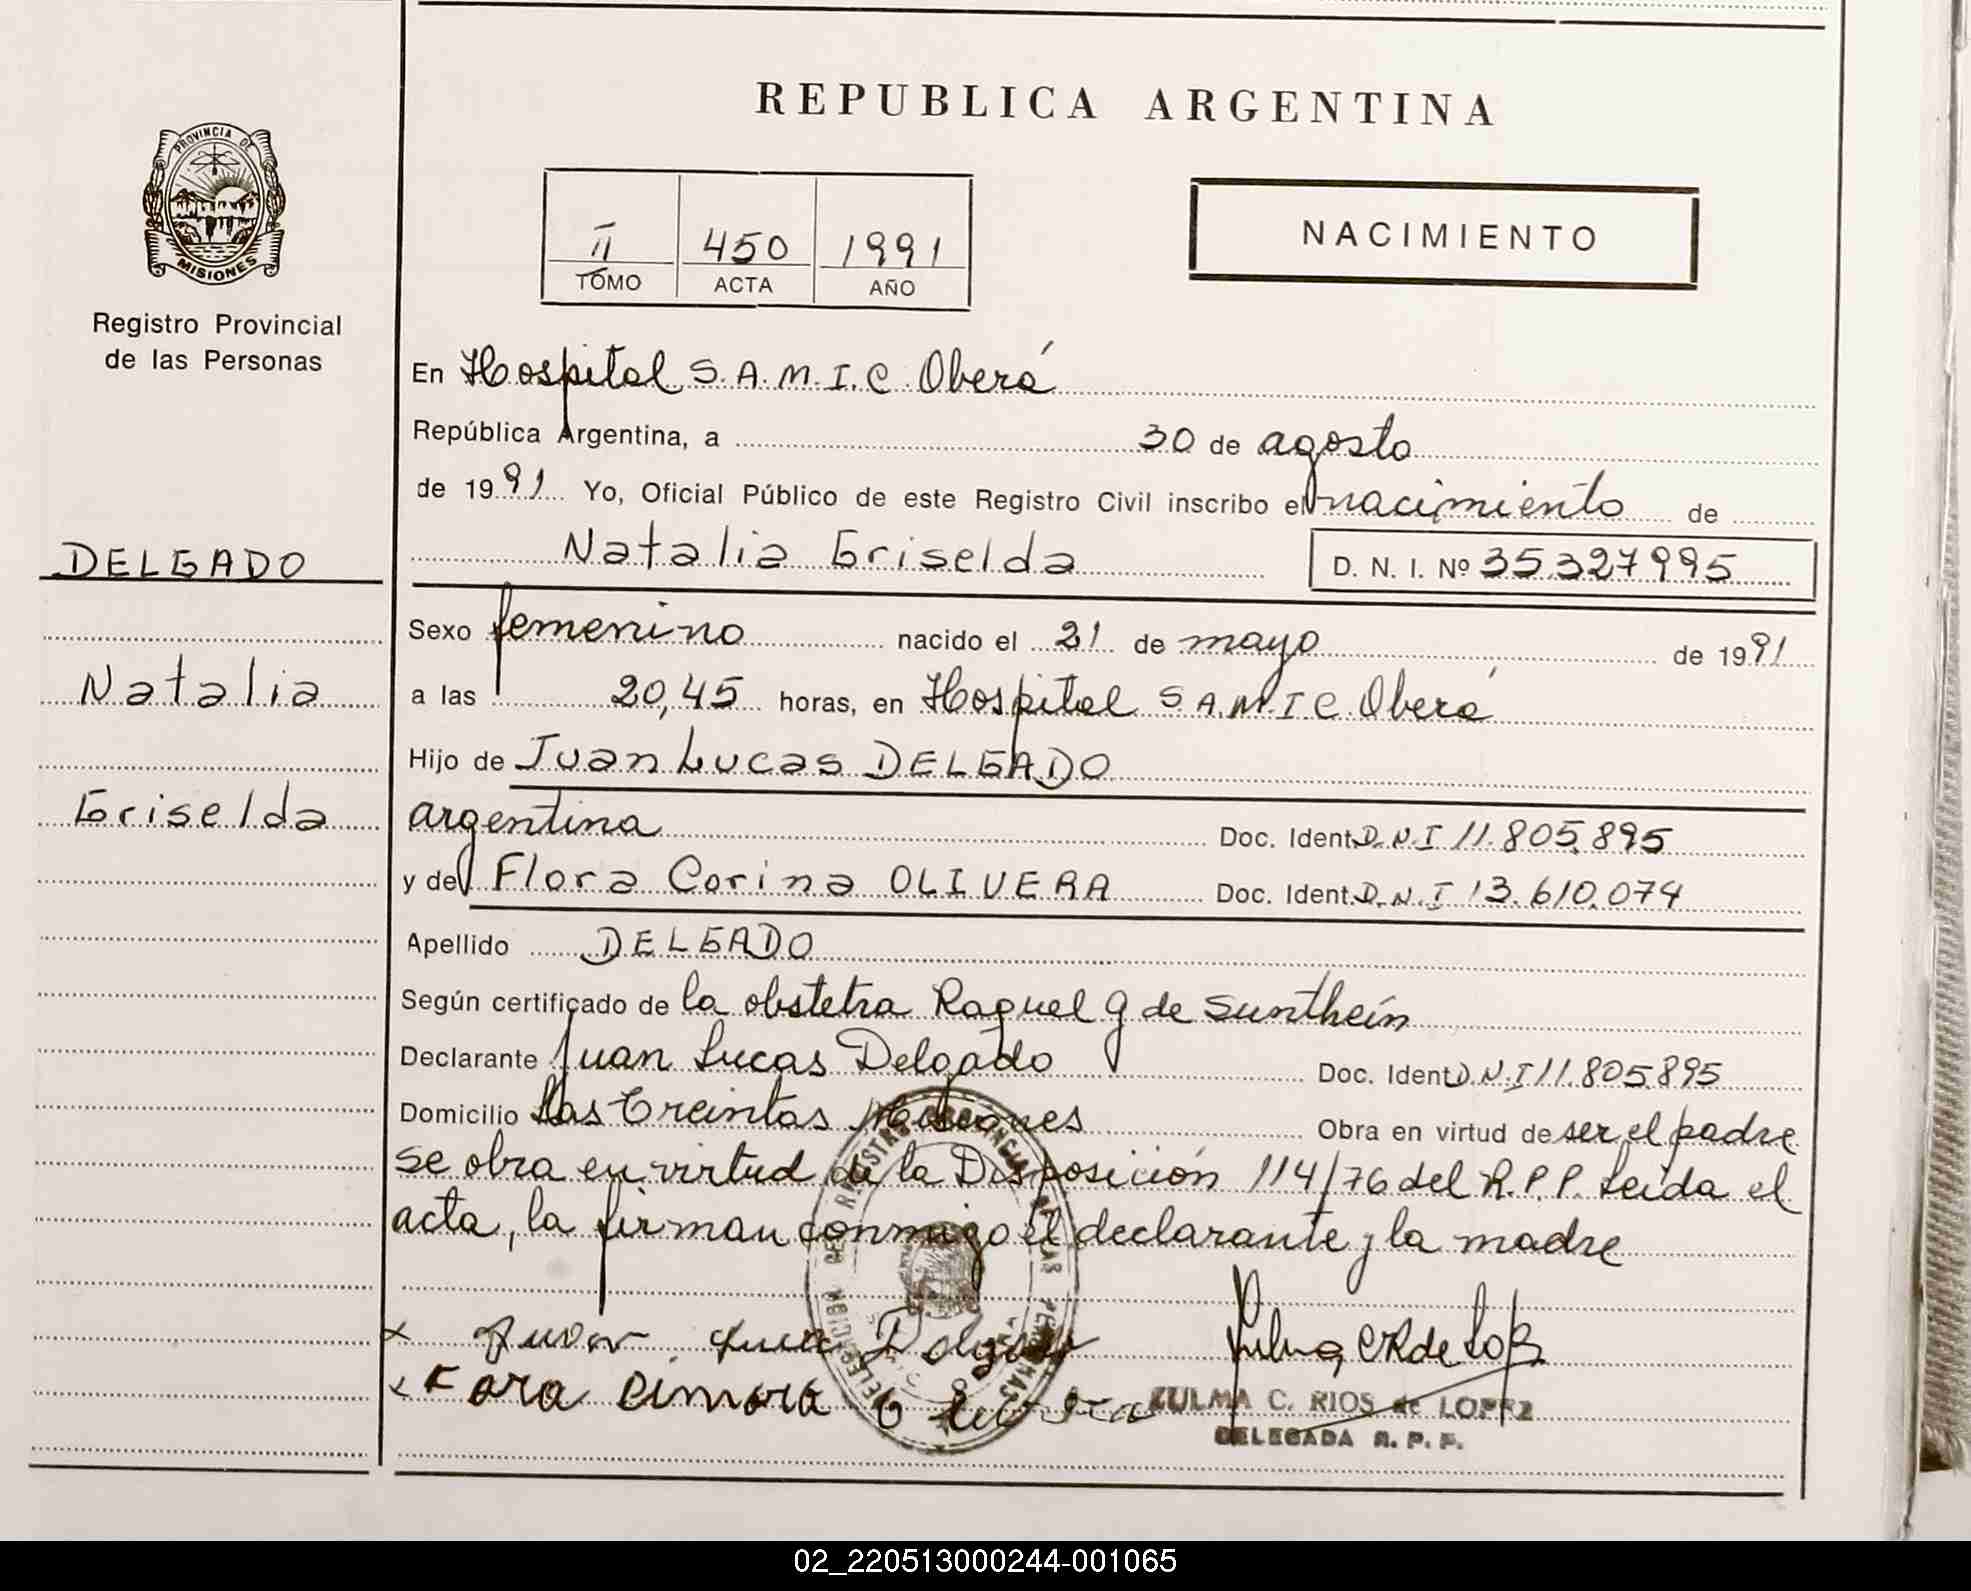 REPUBLICA ARGENTINA
PROVINCIA DE
MISIONES
Registro Provincial
de las Personas
II 450 1991
TOMO ACTA AÑO
NACIMIENTO
DELGADO
Natalia
Griselda
En Hospital S.A.M.I.C. Oberá
República Argentina, a 30 de agosto
de 1991 Yo, Oficial Público de este Registro Civil inscribo el nacimiento de
Natalia Griselda D. N. I. Nº 35.327995
Sexo femenino nacido el 21 de mayo de 1991
a las 20,45 horas, en Hospital S.A.M.I.C. Oberá
Hijo de Juan Lucas DELGADO
argentina Doc. Ident. D.N.I 11.805.895
y de Flora Corina OLIVERA Doc. Ident. D.N.I 13.610.074
Apellido DELGADO
Según certificado de la obstetra Raquel G de Sunthein
Declarante Juan Lucas Delgado Doc. Ident. D.N.I 11.805.895
Domicilio Las Treintas Misiones Obra en virtud de ser el padre
se obra en virtud de la Disposición 114/76 del R.P.P. Leída el
acta, la firman conmigo el declarante y la madre
ZULMA C. RIOS de LOPEZ
DELEGADA R. P. P.
02_220513000244-001065